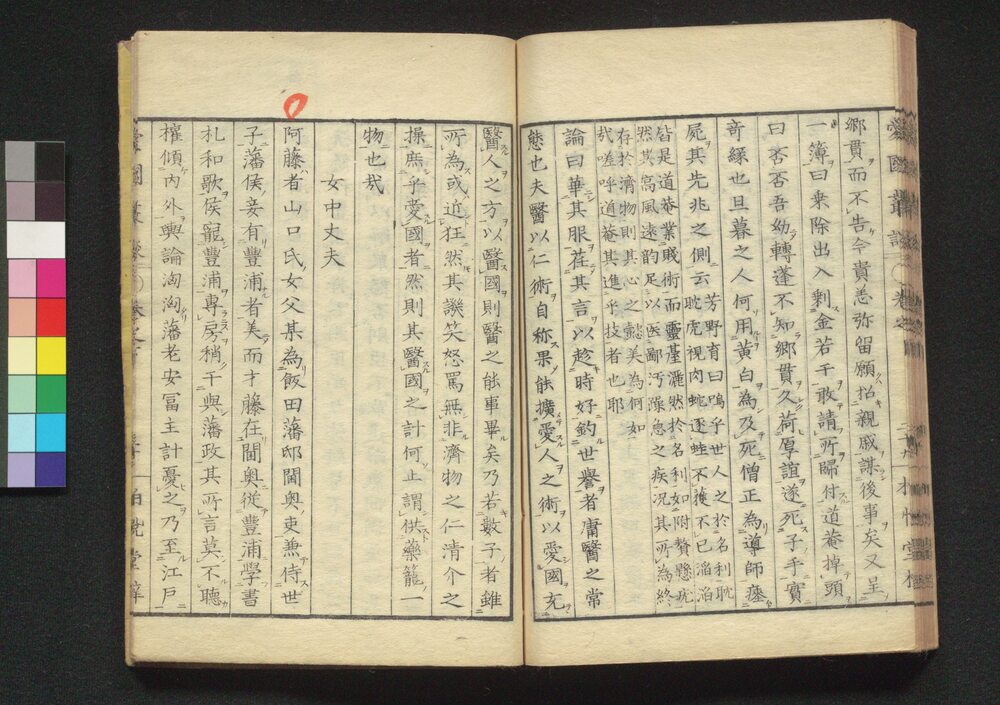 郷貫而不告今貴恙弥留願招親戚謀後事矣又呈
一簿曰乗除出入剰金若干敢請所歸付道菴掉頭
曰否否吾幼轉蓬不知郷貫久荷厚誼遂死子手實
奇縁也旦暮之人何用黄白為及死僧正為導師瘞
屍其先兆之側云
芳野育曰嗚乎世人之於名利耽
耽虎視肉蛇逐蛙不獲不已滔滔
皆是道菴業賤術而靈䑓灑然於名利如附贅懸疣
然其高風遠韵足以医鄙汚澡急之疾况其所為終
存於濟物則其心之懿美為何如
哉嗟呼道菴其進乎技者也耶
論曰華其服荘其言以趁時好釣世譽者庸醫之常
態也夫醫以仁術自称果能擴愛人之術以愛國充
醫人之方以醫國則醫之能事畢矣乃若數子者雖
所為或近狂然其譏笑怒罵無非濟物之仁清介之
操庶乎愛國者然則其醫國之計何止謂供藥籠一
物也哉
女中丈夫
阿藤者山口氏女父某為飯田藩邸閽奥吏兼侍世
子藩侯妾有豊浦者美而才藤在閽奥從豊浦學書
札和歌侯寵豊浦専房稍干與藩政其所言莫不聽
權傾内外輿論洶洶藩老安冨主計憂之乃至江戸